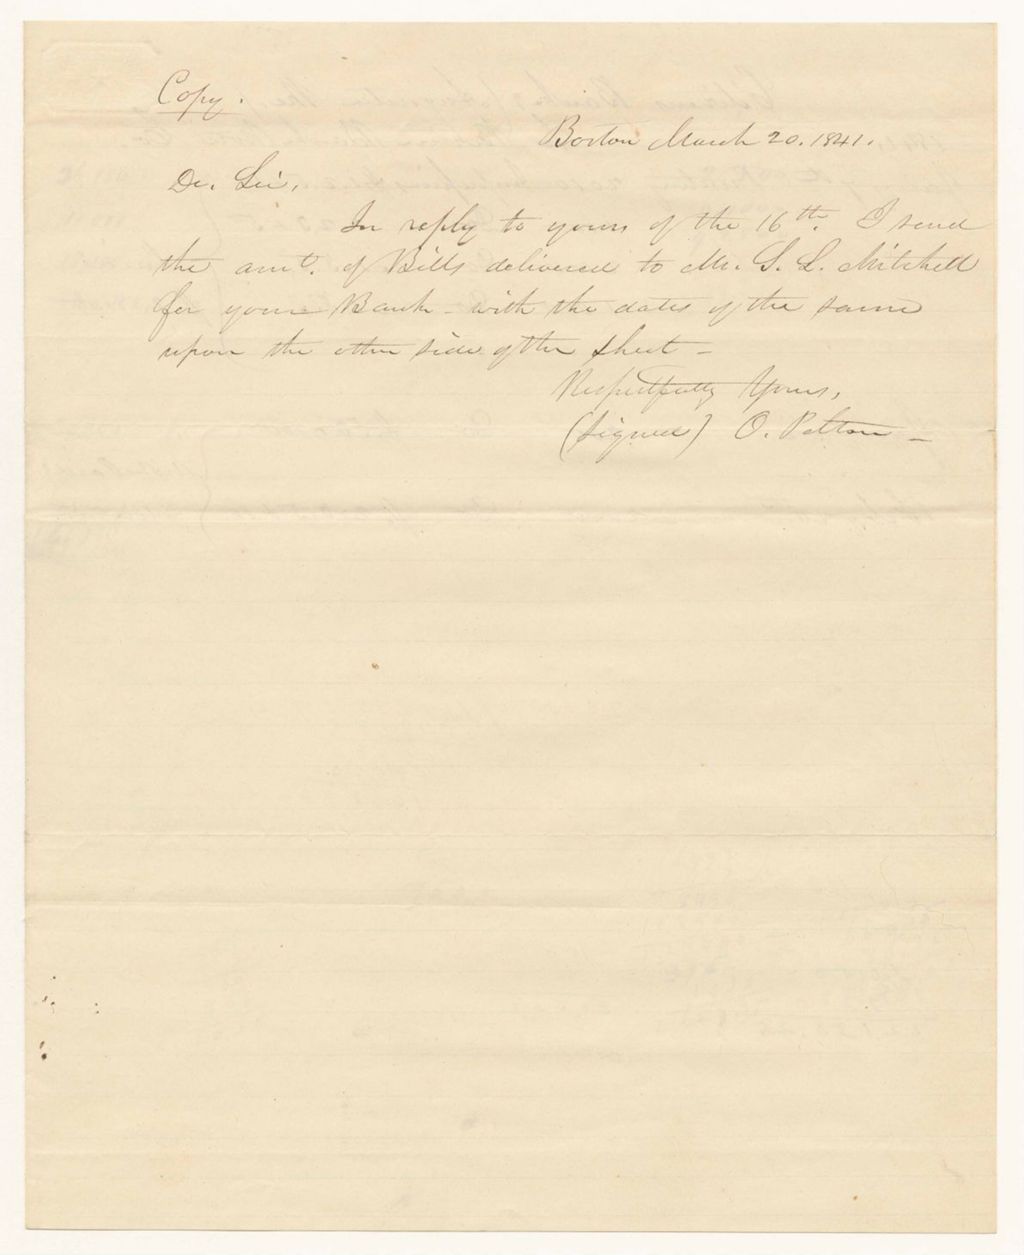 Copy.
Boston March 20. 1841.
Dr. Sir,
In reply to yours of the 16th. I send
the amt. of Bills delivered to Mr. S. L. Mitchell
for your Bank - with the dates of the same
upon the other side of the sheet -
Respectfully Yours,
(Signed) O. Pelton -